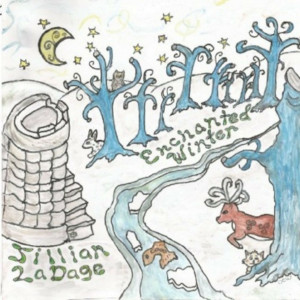 Enchanted
Winter
Jillian
LaDage